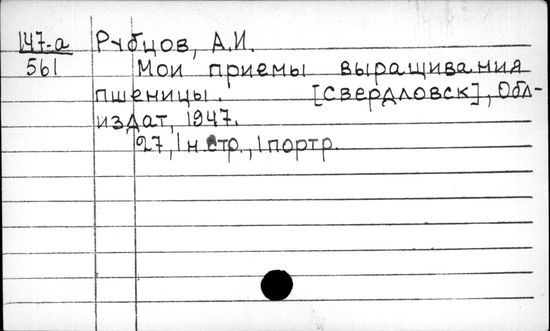 147-а Рубцов, А.И.
561 Мои приемы выращивания
пшеницы. [Свердловск], Обл-
издат, 1947.
27, 1 н.стр., 1 портр.